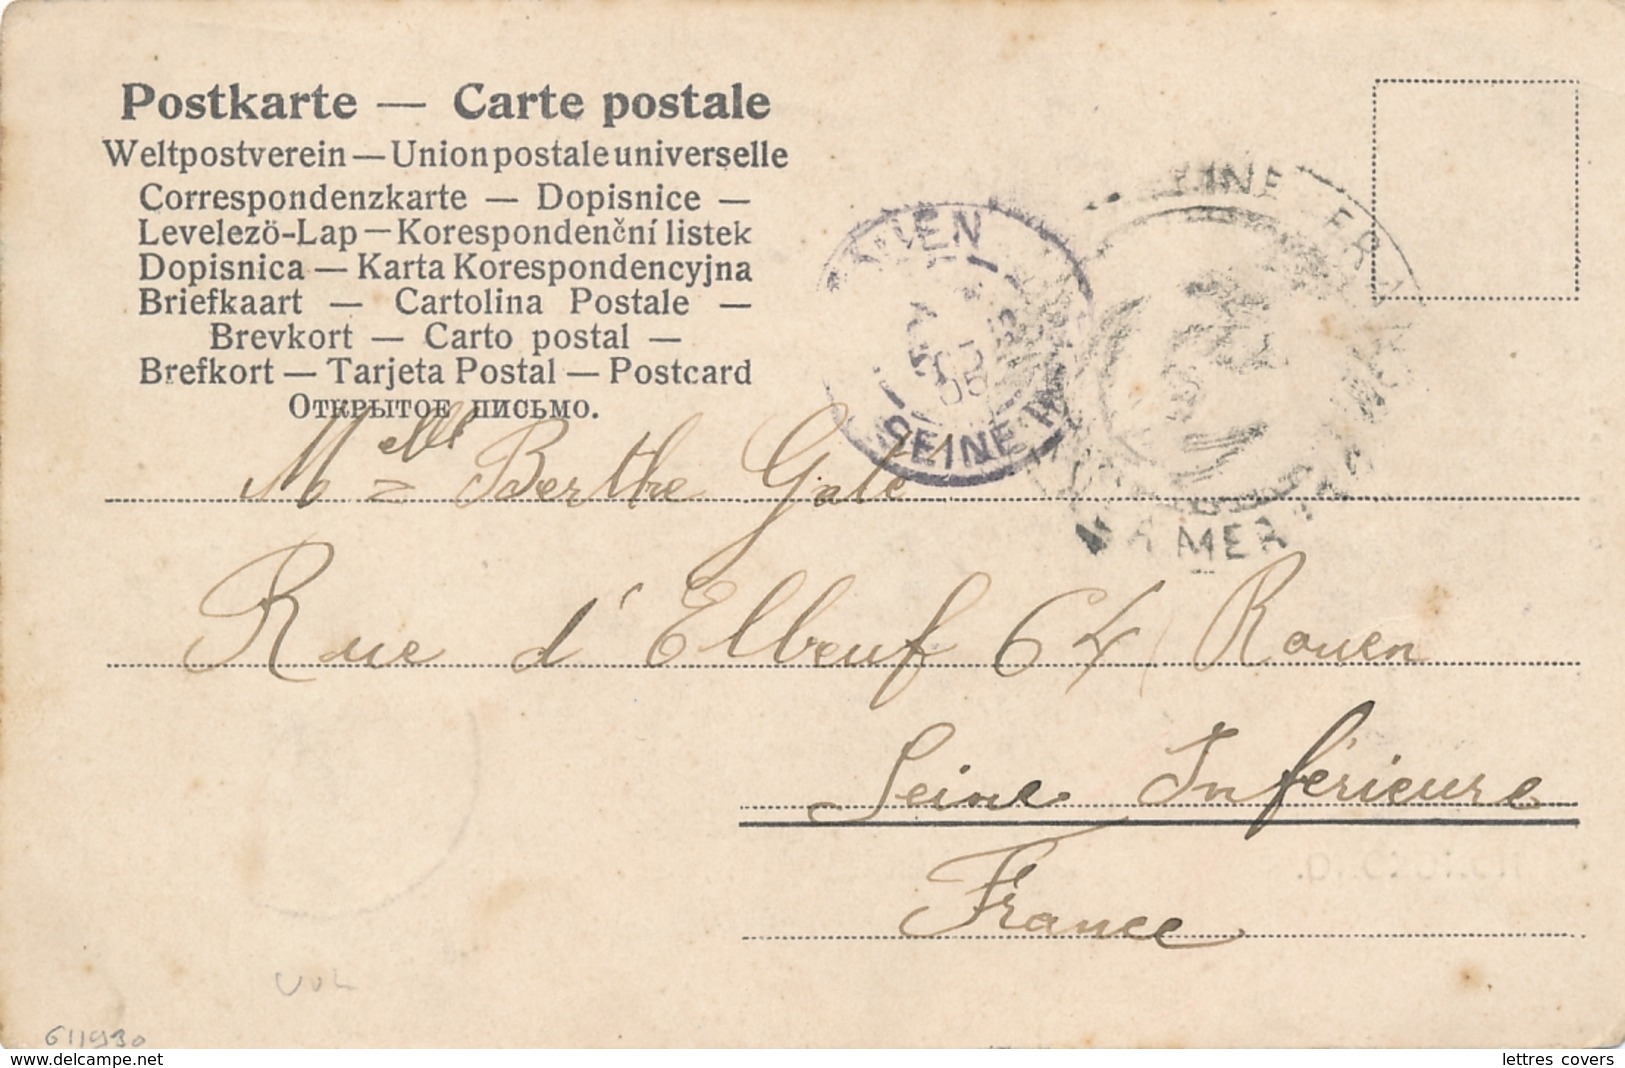 Postkarte — Carte postale
Weltpostverein — Union postale universelle
Correspondenzkarte — Dopisnice —
Levelezö-Lap — Korespondenční listek
Dopisnica — Karta Korespondencyjna
Briefkaart — Cartolina Postale —
Brevkort — Carto postal —
Brefkort — Tarjeta Postal — Postcard
Открытое письмо.
SEINE
MER
Melle Berthe Galé
Rue d'Elbeuf 64 Rouen
Seine Inférieure
France
611930
lettres covers